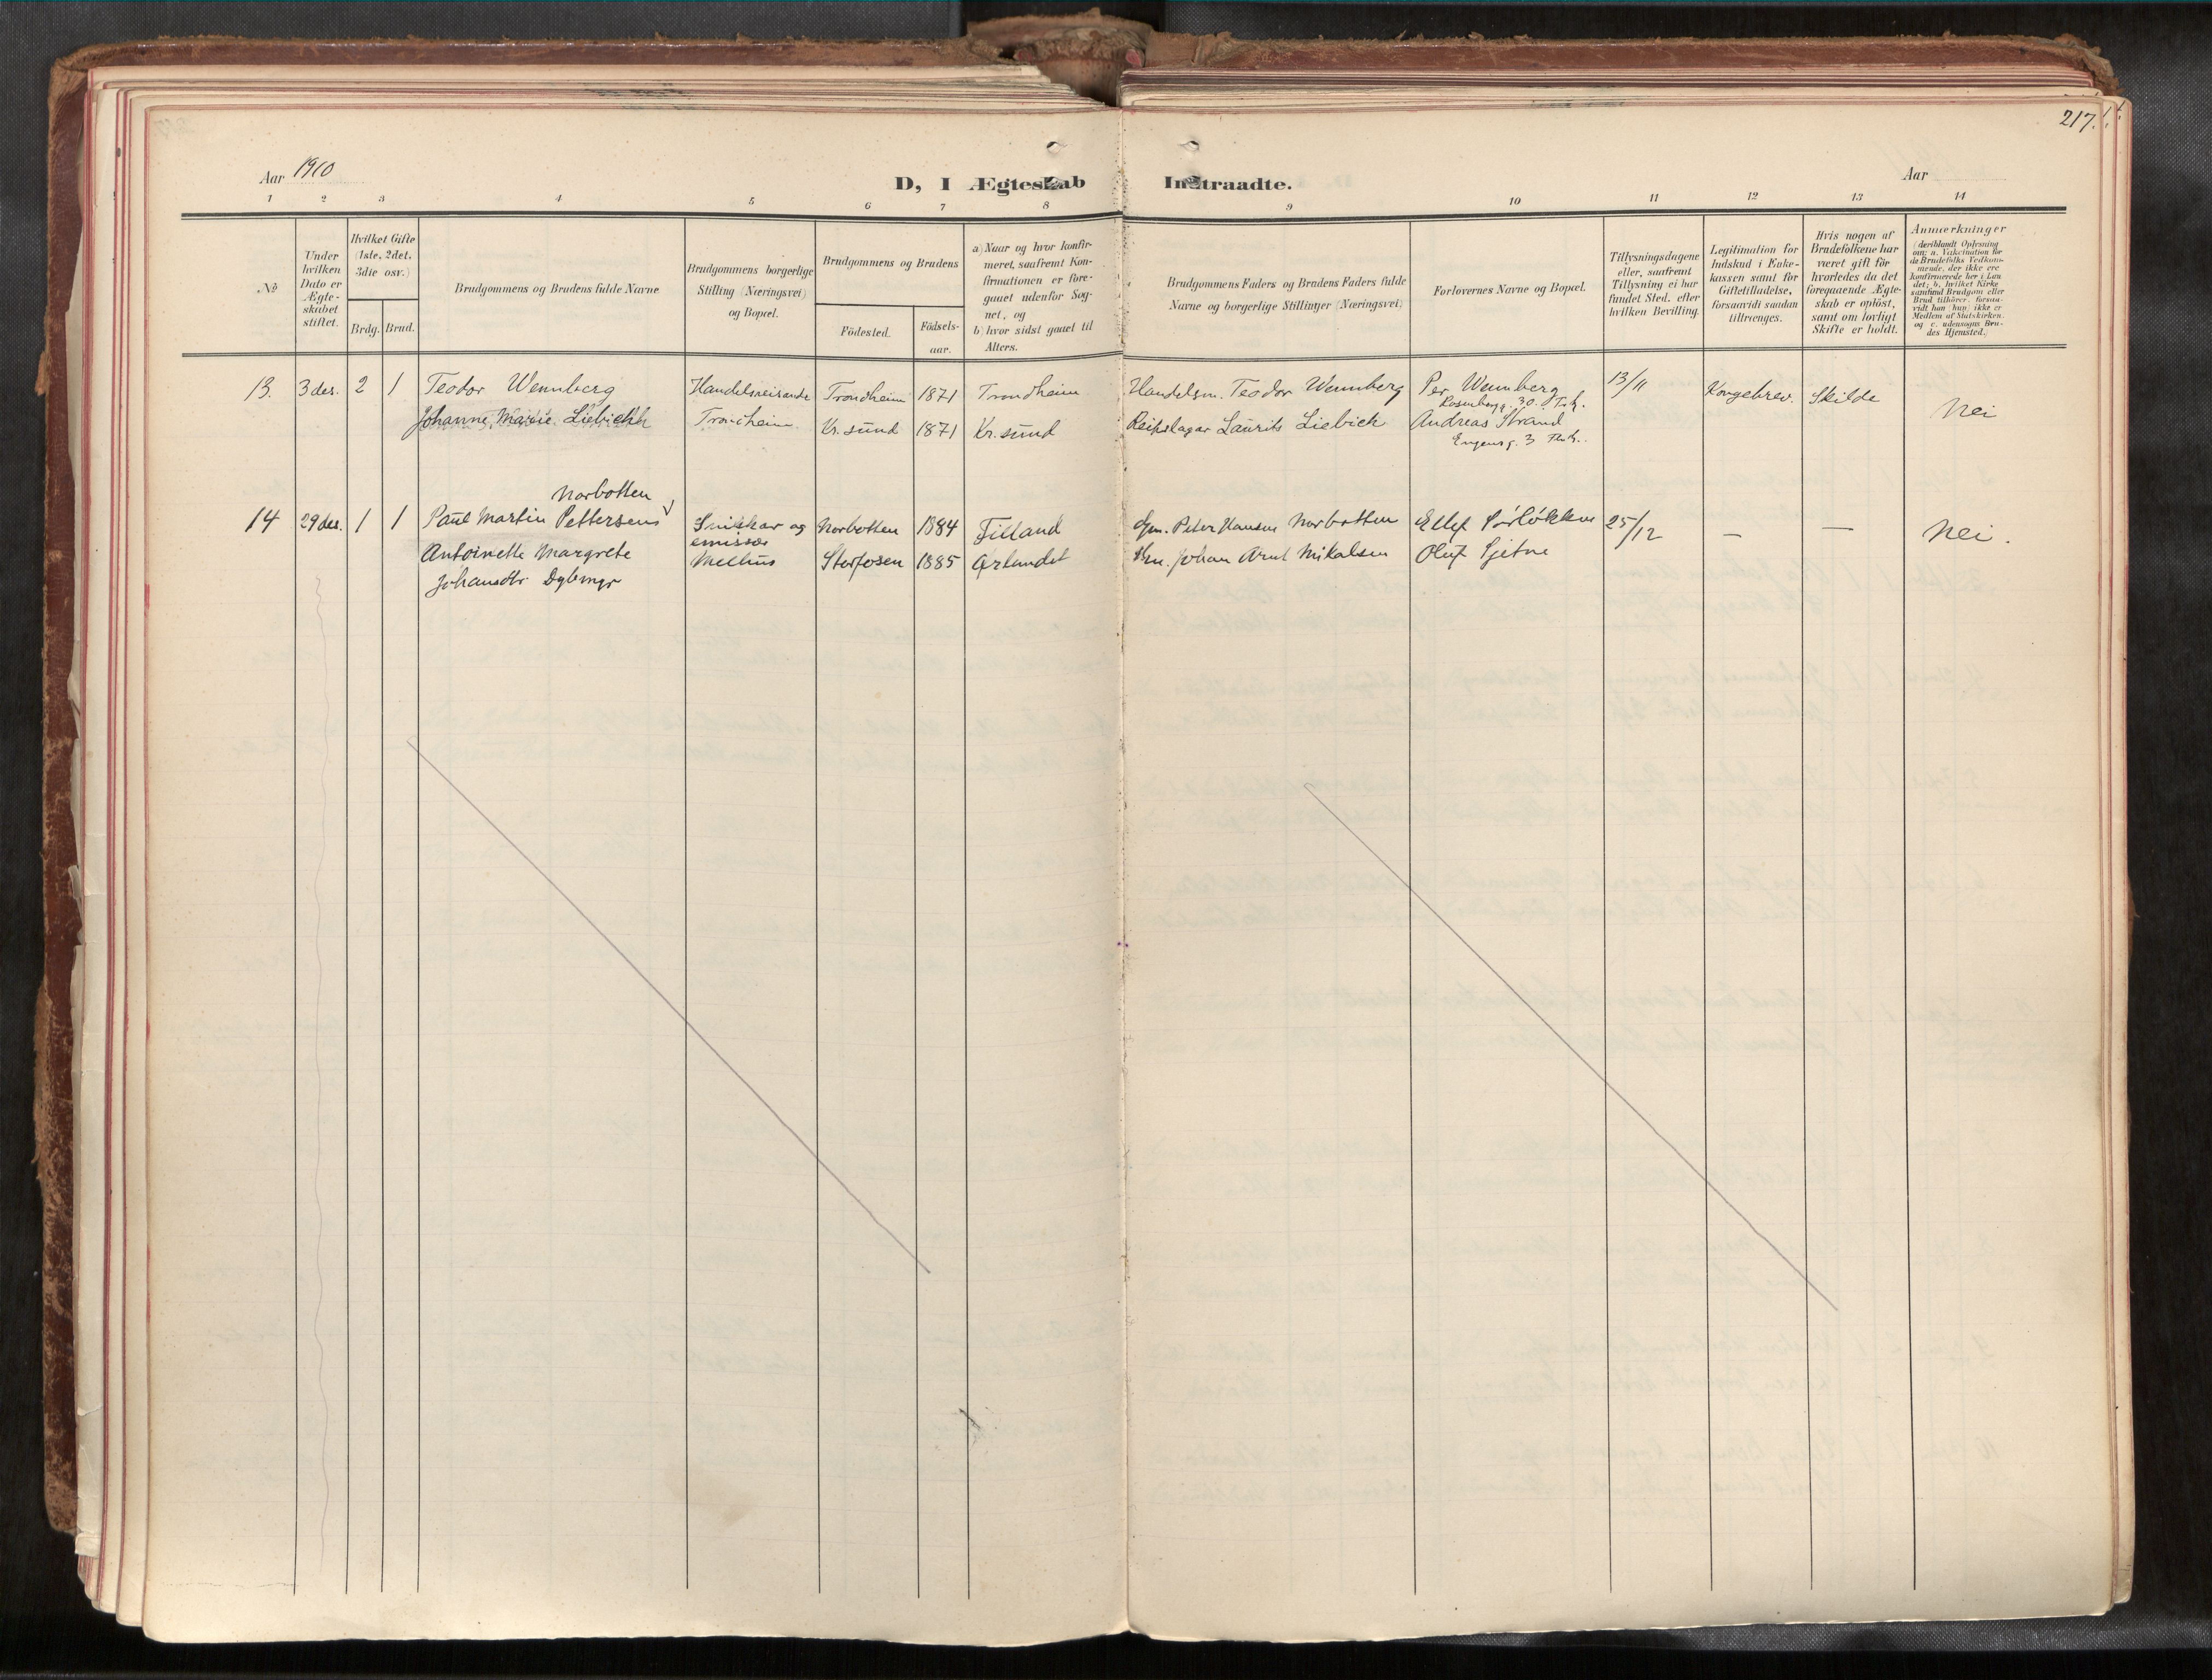 217.
Aar 1910
D, I Ægteskab Indtraadte.
Aar
1 2 3 4 5 6 7 8 9 10 11 12 13 14
No
Under hvilken Dato er Ægte-skabet stiftet.
Hvilket Gifte (1ste, 2det, 3die osv.)
Brdg. Brud.
Brudgommens og Brudens fulde Navne
Brudgommens borgerlige Stilling (Næringsvei) og Bopæl.
Brudgommens og Brudens
Födested.
Födsels-aar.
a) Naar og hvor konfir-
meret, saafremt Kon-
firmationen er fore-
gaaet udenfor Sog-
net, og
b) hvor sidst gaaet til
Alters.
Brudgommens Faders og Brudens Faders fulde
Navne og borgerlige Stillinger (Næringsvei)
Forlovernes Navne og Bopæl.
Tillysningsdagene
eller, saafremt
Tillysning ei har
fundet Sted, efter
hvilken Bevilling.
Legitimation for
Indskud i Enke-
kassen samt for
Giftetilladelse,
forsaavidt saadan
tiltrænges.
Hvis nogen af
Brudefolkene har
været gift för
hvorledes da det
foregaaende Ægte-
skab er oplöst,
samt om lovligt
Skifte er holdt.
Anmærkninger
(deriblandt Oplysning
om: a. Vakcination for
de Brudefolks Vedkom-
mende, der ikke ere
konfirmerede her i Lan
det; b. hvilket Kirke
samfund Brudgom eller
Brud tilhörer, forsaa-
vidt han (hun) ikke er
Medlem af Statskirken.
og c. udensogns Bru-
des Hjemsted.)
13. 3 des. 2 1 Teodor Wennberg Handelsreisande Trondheim 1871 Trondheim Handelsm. Teodor Wennberg Per Wennberg 13/11 Kongebrev. Skilde Nei
Rosenborgg. 30. Trh.
Johanne Marie Liebich Trondheim Kr.sund 1871 Kr.sund Reipslagar Laurits Liebich Andreas Strand
3
Norbotten
14 29 des. 1 1 Paul Martin Pettersen Snikkar og Norbotten 1884 Filland Peter Hansen Norbotten 25/12 — — Nei.
emissær
Antoinette Margrete Melhus Storfosen 1885 Ørlandet Johan Arnt Mikalsen Oluf Gjetne
Johansdtr.